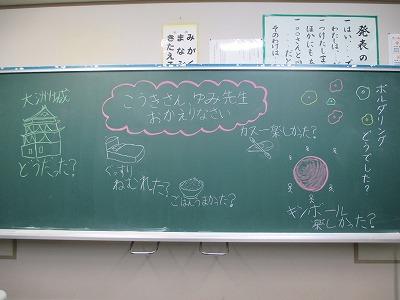 発表の
みがく
まなぶ
きたえ
そのわけは
大洲城
どうだった?
こうきさん、ゆみ先生
おかえりなさい
ぐっすり
ねむれた?
ごはんうまかった?
カヌー楽しかった?
ボルダリング
どうでした?
キンボール
楽しかった?